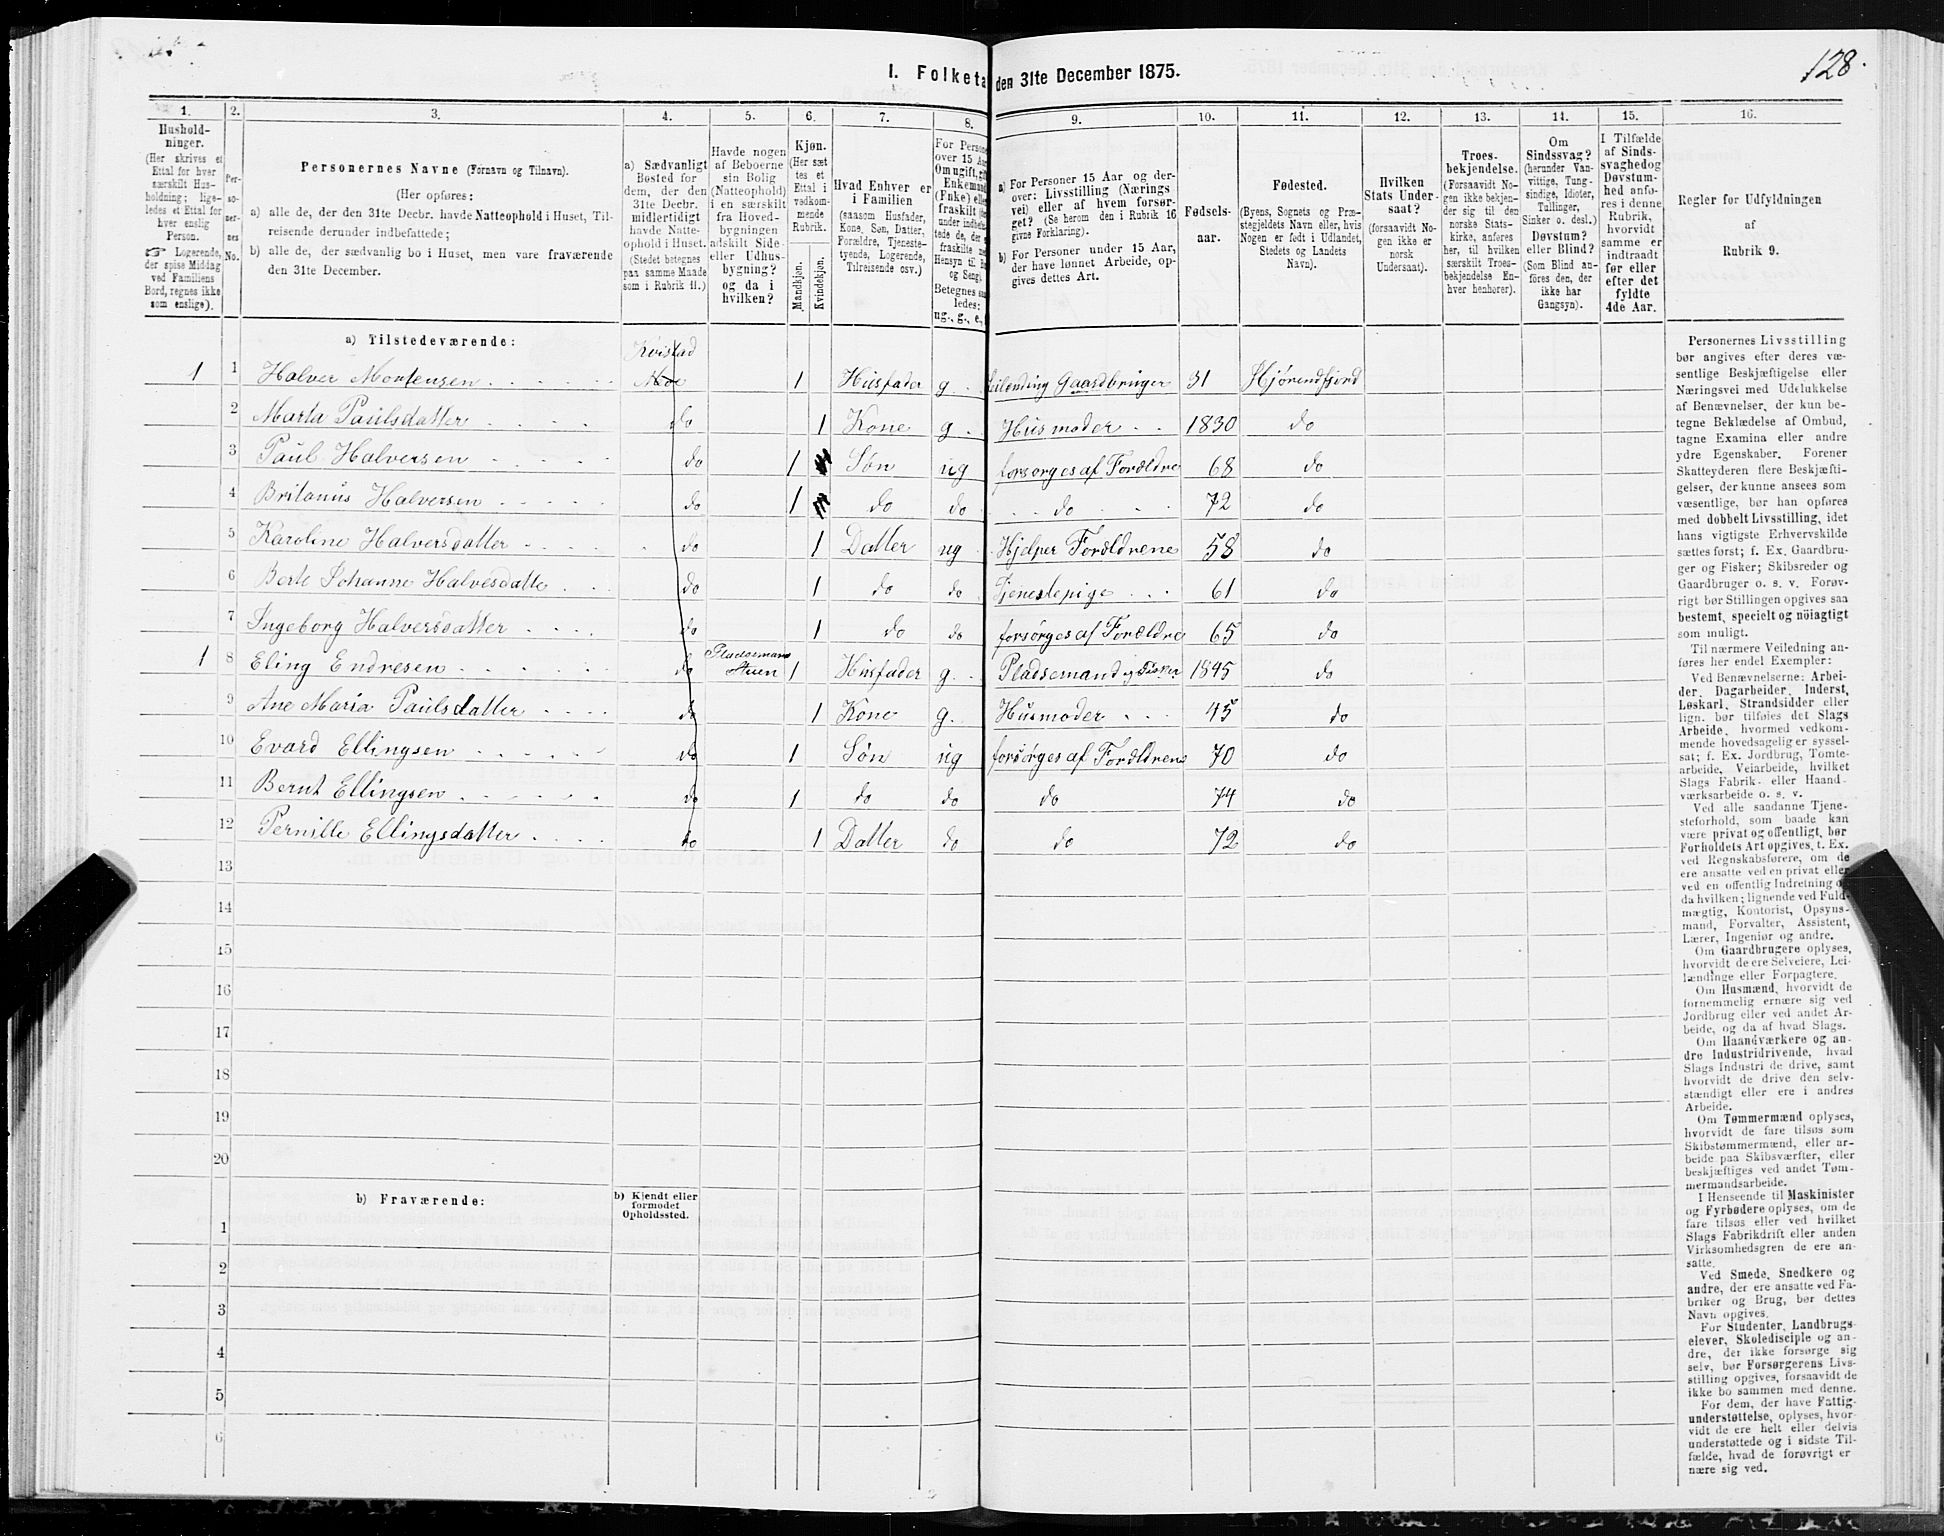 128.
I. Folketa den 31te December 1875.
1. 2. 3. 4. 5. 6. 7. 8. 9. 10. 11. 12. 13. 14. 15. 16.
Hushold-
ninger.
(Her skrives et
Ettal for hver
særskilt Hus-
holdning; lige-
ledes et Ettal for
hver enslig
Person.
Logerende,
der spise Middag
ved Familiens
Bord, regnes ikke
som enslige).
Per-
so-
ner-
nes
No.
Personernes Navne (Fornavn og Tilnavn).
(Her opføres:
a) alle de, der den 31te Decbr. havde Natteophold i Huset, Til-
reisende derunder indbefattede;
b) alle de, der sædvanlig bo i Huset, men vare fraværende
den 31te December.
a) Sædvanligt
Bosted for
dem, der den
31te Decbr.
midlertidigt
havde Natte-
ophold i Huset.
(Stedet betegnes
paa samme Maade
som i Rubrik 11.)
Havde nogen
af Beboerne
sin Bolig
(Natteophold)
i en særskilt
fra Hoved-
bygningen
adskilt Side-
eller Udhus-
bygning?
og da i
hvilken?
Kjøn.
(Her sæt
tes et
Ettal i
vedkom-
mende
Rubrik.
Mandkjøn.
Kvindekjøn.
Hvad Enhver er
i Familien
(saasom Husfader,
Kone, Søn, Datter,
Forældre, Tjeneste-
tyende, Logerende,
Tilreisende osv.)
For Persone
over 15 Aa
Om ugift, gif
Enkemand
(Enke) elle
fraskilt
under indbefa
tede de, der
fraskilte
Hensyn til B
og Seng).
Betegnes
ledes:
ug., g., e.,
a) For Personer 15 Aar og der-
over: Livsstilling (Nærings
vei) eller af hvem forsør-
get? (Se herom den i Rubrik 16
givne Forklaring).
b) For Personer under 15 Aar,
der have lønnet Arbeide, op-
gives dettes Art.
Fødsels-
aar.
Fødested.
(Byens, Sognets og Præ-
stegjeldets Navn eller, hvis
Nogen er født i Udlandet,
Stedets og Landets
Navn).
Hvilken
Stats Under-
saat?
(forsaavidt No-
gen ikke er
norsk
Undersaat).
Troes-
bekjendelse.
(Forsaavidt No-
gen ikke bekjen-
der sig til den
norske Stats-
kirke, anføres
her, til hvilken
særskilt Troes-
bekjendelse En-
hver henhører).
Om
Sindssvag?
(herunder Van-
vittige, Tung-
sindige, Idioter,
Tullinger,
Sinker o. desl.)
Døvstum?
eller Blind?
(Som Blind an-
føres den, der
ikke har
Gangsyn).
I Tilfælde
af Sinds-
svaghed og
Døvstum-
hed anfø-
res i denne
Rubrik,
hvorvidt
samme er
indtraadt
før eller
efter det
fyldte
4de Aar.
Regler for Udfyldningen
af
Rubrik 9.
a) Tilstedeværende:
Kvistad
1 1 Halver Mortensen 1 Husfader g. Leilending Gaardbruger 31 Hjørendfjord
2 Marta Paulsdatter do 1 Kone g. Husmoder 1830 do
3 Paul Halversen do 1 Søn ug forsørges af Forældre 68 do
4 Britanus Halversen do 1 do do do 72 do
5 Karoline Halversdatter do 1 Datter ug Hjelper Forældrene 58 do
6 Berte Johanne Halvesdatte do 1 do do Tjenestepige 61 do
7 Ingeborg Halversdatter do 1 do do forsørges af Forældre 65 do
1 8 Eling Endresen do Pladsemans Stuen 1 Husfader g. Pladsemand og Fisker 1845 do
9 Ane Maria Paulsdatter do 1 Kone g. Husmoder 45 do
10 Evard Ellingsen do 1 Søn ug forsørges af Forældrene 70 do
11 Bernt Ellingsen do 1 do do do 74 do
12 Pernille Ellingsdatter do 1 Datter do do 72 do
13
14
15
16
17
18
19
20
b) Fraværende:
b) Kjendt eller
formodet
Opholdssted.
1
2
3
4
5
6
Personernes Livsstilling
bør angives efter deres væ-
sentlige Beskjæftigelse eller
Næringsvei med Udelukkelse
af Benævnelser, der kun be-
tegne Beklædelse af Ombud,
tagne Examina eller andre
ydre Egenskaber. Forener
Skatteyderen flere Beskjæfti-
gelser, der kunne ansees som
væsentlige, bør han opføres
med dobbelt Livsstilling, idet
hans vigtigste Erhvervskilde
sættes først; f. Ex. Gaardbru-
ger og Fisker; Skibsreder og
Gaardbruger o. s. v. Forøv-
rigt bør Stillingen opgives saa
bestemt, specielt og nöiagtigt
som muligt.
Til nærmere Veiledning an-
føres her endel Exempler:
Ved Benævnelserne: Arbei-
der, Dagarbeider, Inderst,
Løskarl, Strandsidder eller
lign. bør tilføies det Slags
Arbeide, hvormed vedkom-
mende hovedsagelig er syssel-
sat; f. Ex. Jordbrug, Tømte-
arbeide, Veiarbeide, hvilket
Slags Fabrik- eller Haand-
værksarbeide o. s. v.
Ved alle saadanne Tjene-
steforhold, som baade kan
være privat og offentligt, bør
Forholdets Art opgives, t. Ex.
ved Regnskabsførere, om de
ere ansatte ved en privat eller
ved en offentlig Indretning og
da hvilken; lignende ved Fuld-
mægtig, Kontorist, Opsyns-
mand, Forvalter, Assistent,
Lærer, Ingeniør og andre.
Om Gaardbrugere oplyses,
hvorvidt de ere Selveiere, Lei-
lændinge eller Forpagtere.
Om Husmænd, hvorvidt de
fornemmelig ernære sig ved
Jordbrug eller ved andet Ar-
beide, og da af hvad Slags.
Om Haandværkere og an-
dre Industridrivende, hvad
Slags Industri de drive, samt
hvorvidt de drive den selv-
stændigt eller ere i andres
Arbeide.
Om Tømmermænd oplyses,
hvorvidt de fare tilsøs som
Skibstømmermænd, eller ar-
beide paa Skibsværfter, eller
beskjæftiges ved andet Tøm-
mermandsarbeide.
I Henseende til Maskinister
og Fyrbødere oplyses, om de
fare tilsøs eller ved hvilket
Slags Fabrikdrift eller anden
Virksomhedsgren de ere an-
satte.
Ved Smede, Snedkere og
andre, der ere ansatte ved Fa-
briker og Brug, bør dettes
Navn opgives.
For Studenter, Landbrugs-
elever, Skoledisciple og an-
dre, der ikke forsørge sig
selv, bør Forsørgerens Livs-
stilling opgives, forsaavidt de
ikke bo sammen med denne.
For dem, der have Fattig-
understøttelse, oplyses, hvor-
vidt de ere helt eller delvis
understøttede og i sidste Til-
fælde, hvad de forøvrigt er
nære sig ved.